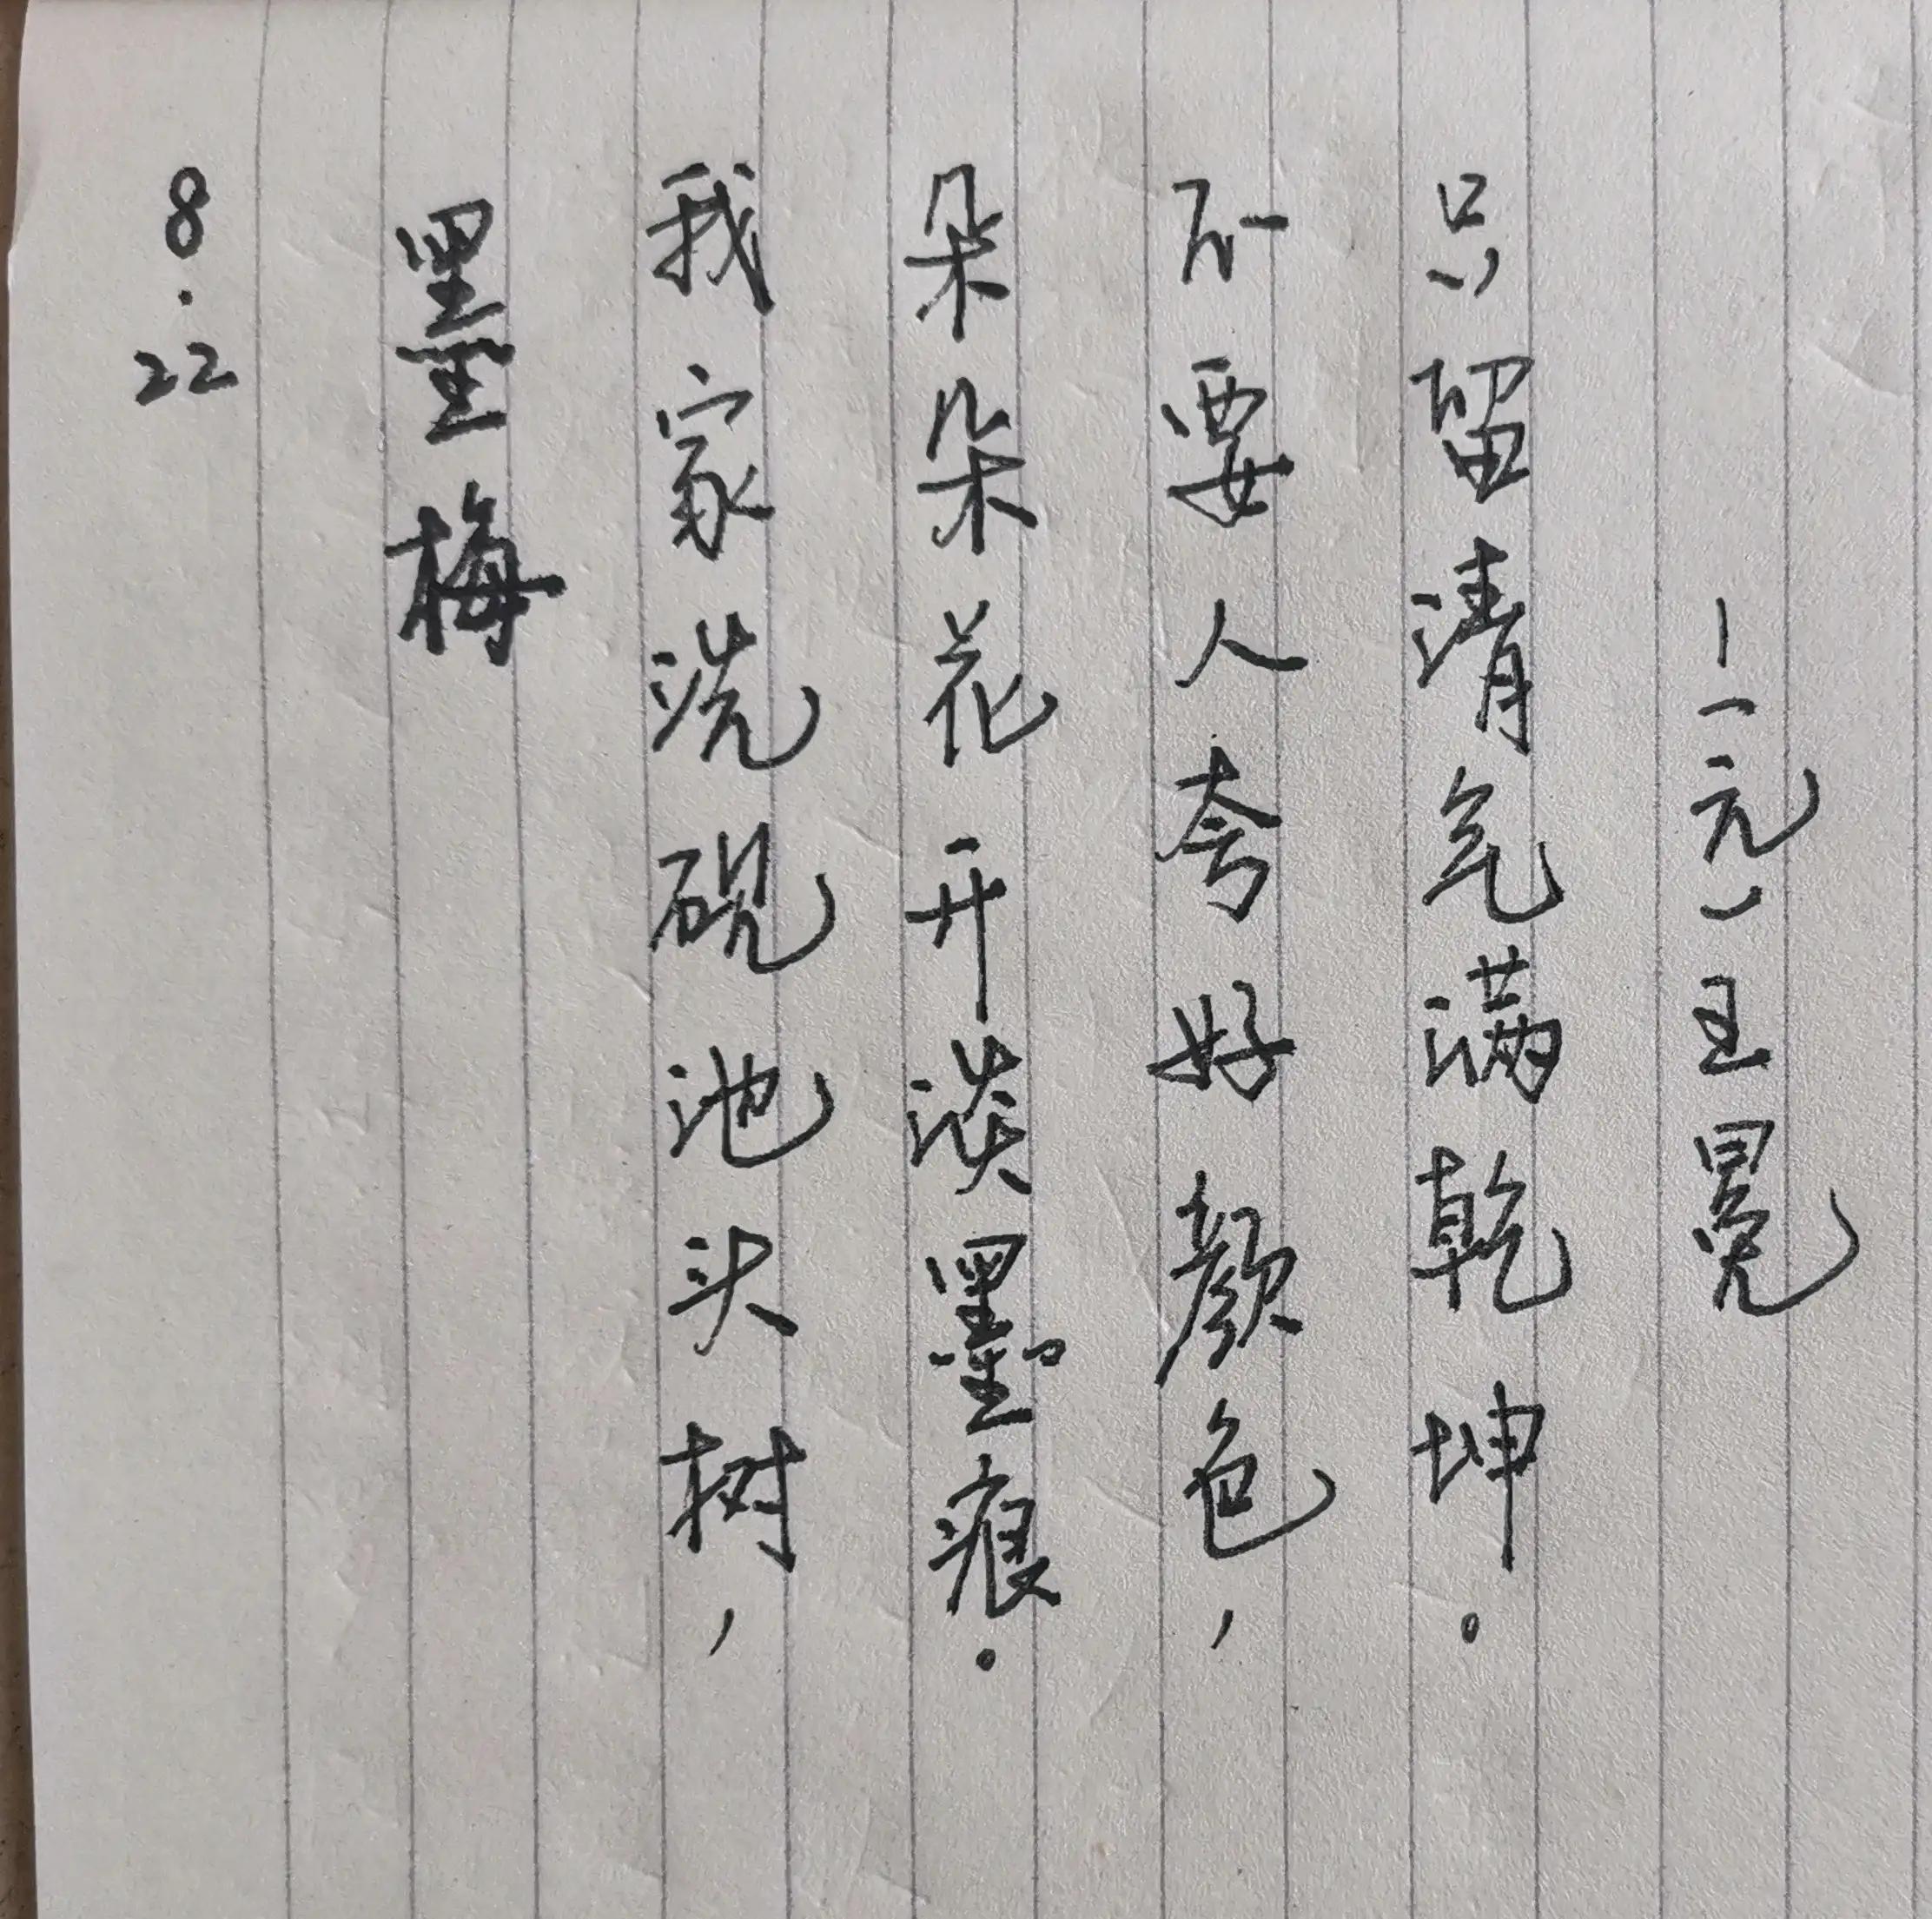 8.22
墨梅
我家洗砚池头树，
朵朵花开淡墨痕。
不要人夸好颜色，
只留清气满乾坤。
—（元）王冕